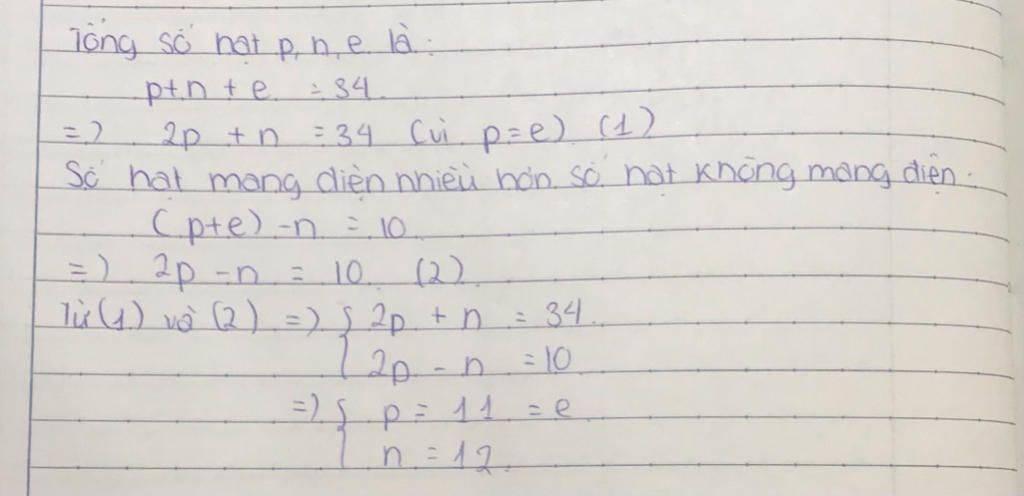 Tổng số hạt p, n, e là:
p+n + e = 34
=> 2p + n = 34 (vì p=e) (1)
Số hạt mang điện nhiều hơn số hạt không mang điện:
(p+e) -n = 10
=> 2p -n = 10 (2)
Từ (1) và (2) => { 2p + n = 34
2p - n = 10
=> { p = 11 = e
n = 12